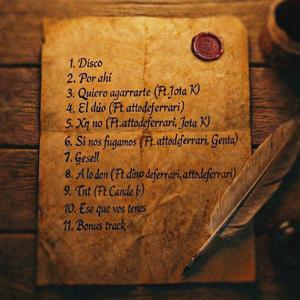 1. Disco
2. Por ahí
3. Quiero agarrarte (Ft. Jota K)
4. El dúo (Ft. attodeferrari)
5. Xq no (Ft. attodeferrari, Jota K)
6. Si nos fugamos (Ft. attodferrari, Genta)
7. Gesell
8. A lo don (Ft. dino deferrari, attodeferrari)
9. Tnt (Ft. Cande b)
10. Ese que vos tenes
11. Bonus track